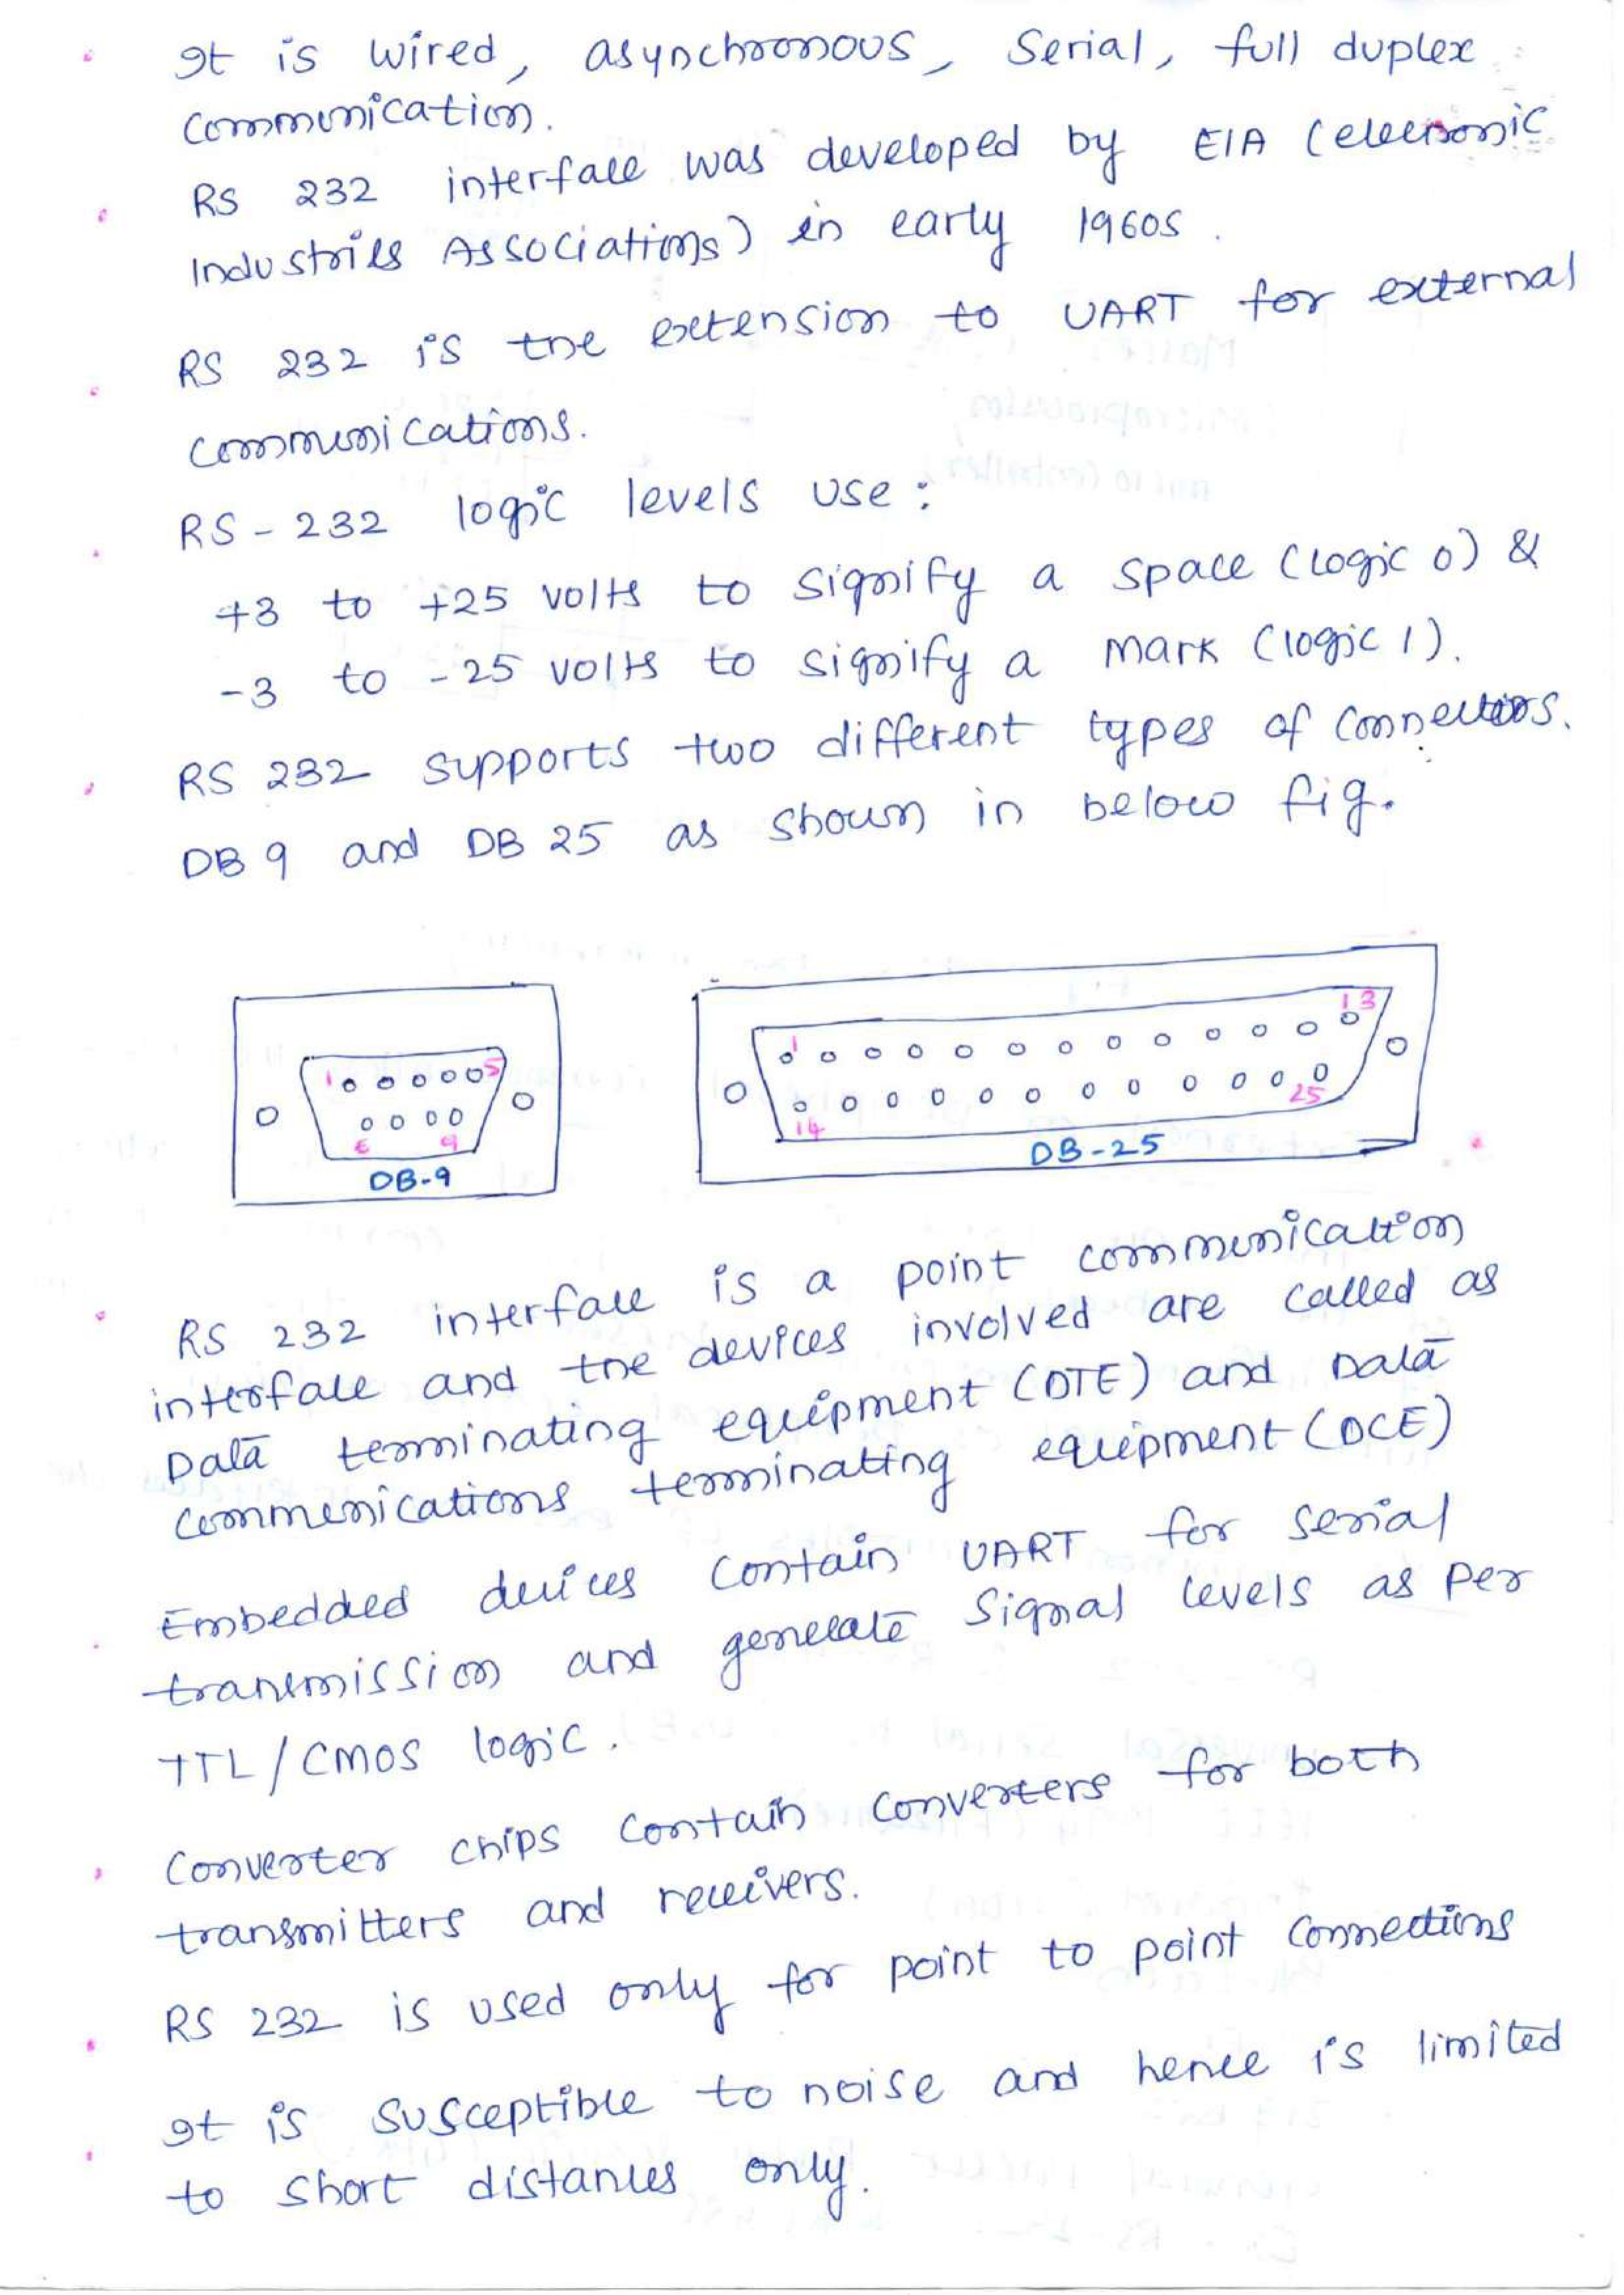 It is wired, asynchronous, Serial, full duplex
communication.
RS 232 interface was developed by EIA (electronic
Industries Associations) in early 1960s.
RS 232 is the extension to UART for external
communications.
RS-232 logic levels use:
+3 to +25 volts to signify a space (logic 0) &
-3 to -25 volts to signify a mark (logic 1).
RS 232 supports two different types of connectors.
DB 9 and DB 25 as shown in below fig.
1 5
6 9
DB-9
1 13
14 25
DB-25
RS 232 interface is a point communication
interface and the devices involved are called as
Data terminating equipment (DTE) and Data
communications terminating equipment (DCE)
Embedded devices contain UART for serial
transmission and generate signal levels as per
TTL/CMOS logic.
Converter chips contain converters for both
transmitters and receivers.
RS 232 is used only for point to point connections
It is susceptible to noise and hence is limited
to short distances only.